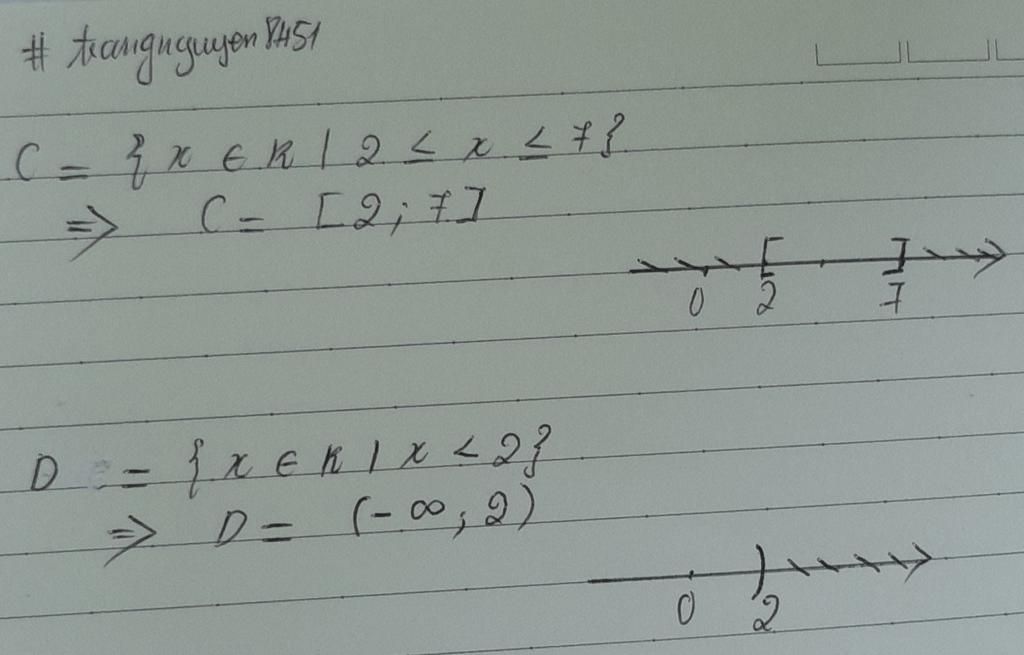 # trangnguyen8451
C = {x ∈ R | 2 ≤ x ≤ 7}
=> C = [2; 7]
0 2 7
D = {x ∈ R | x < 2}
=> D = (-∞; 2)
0 2